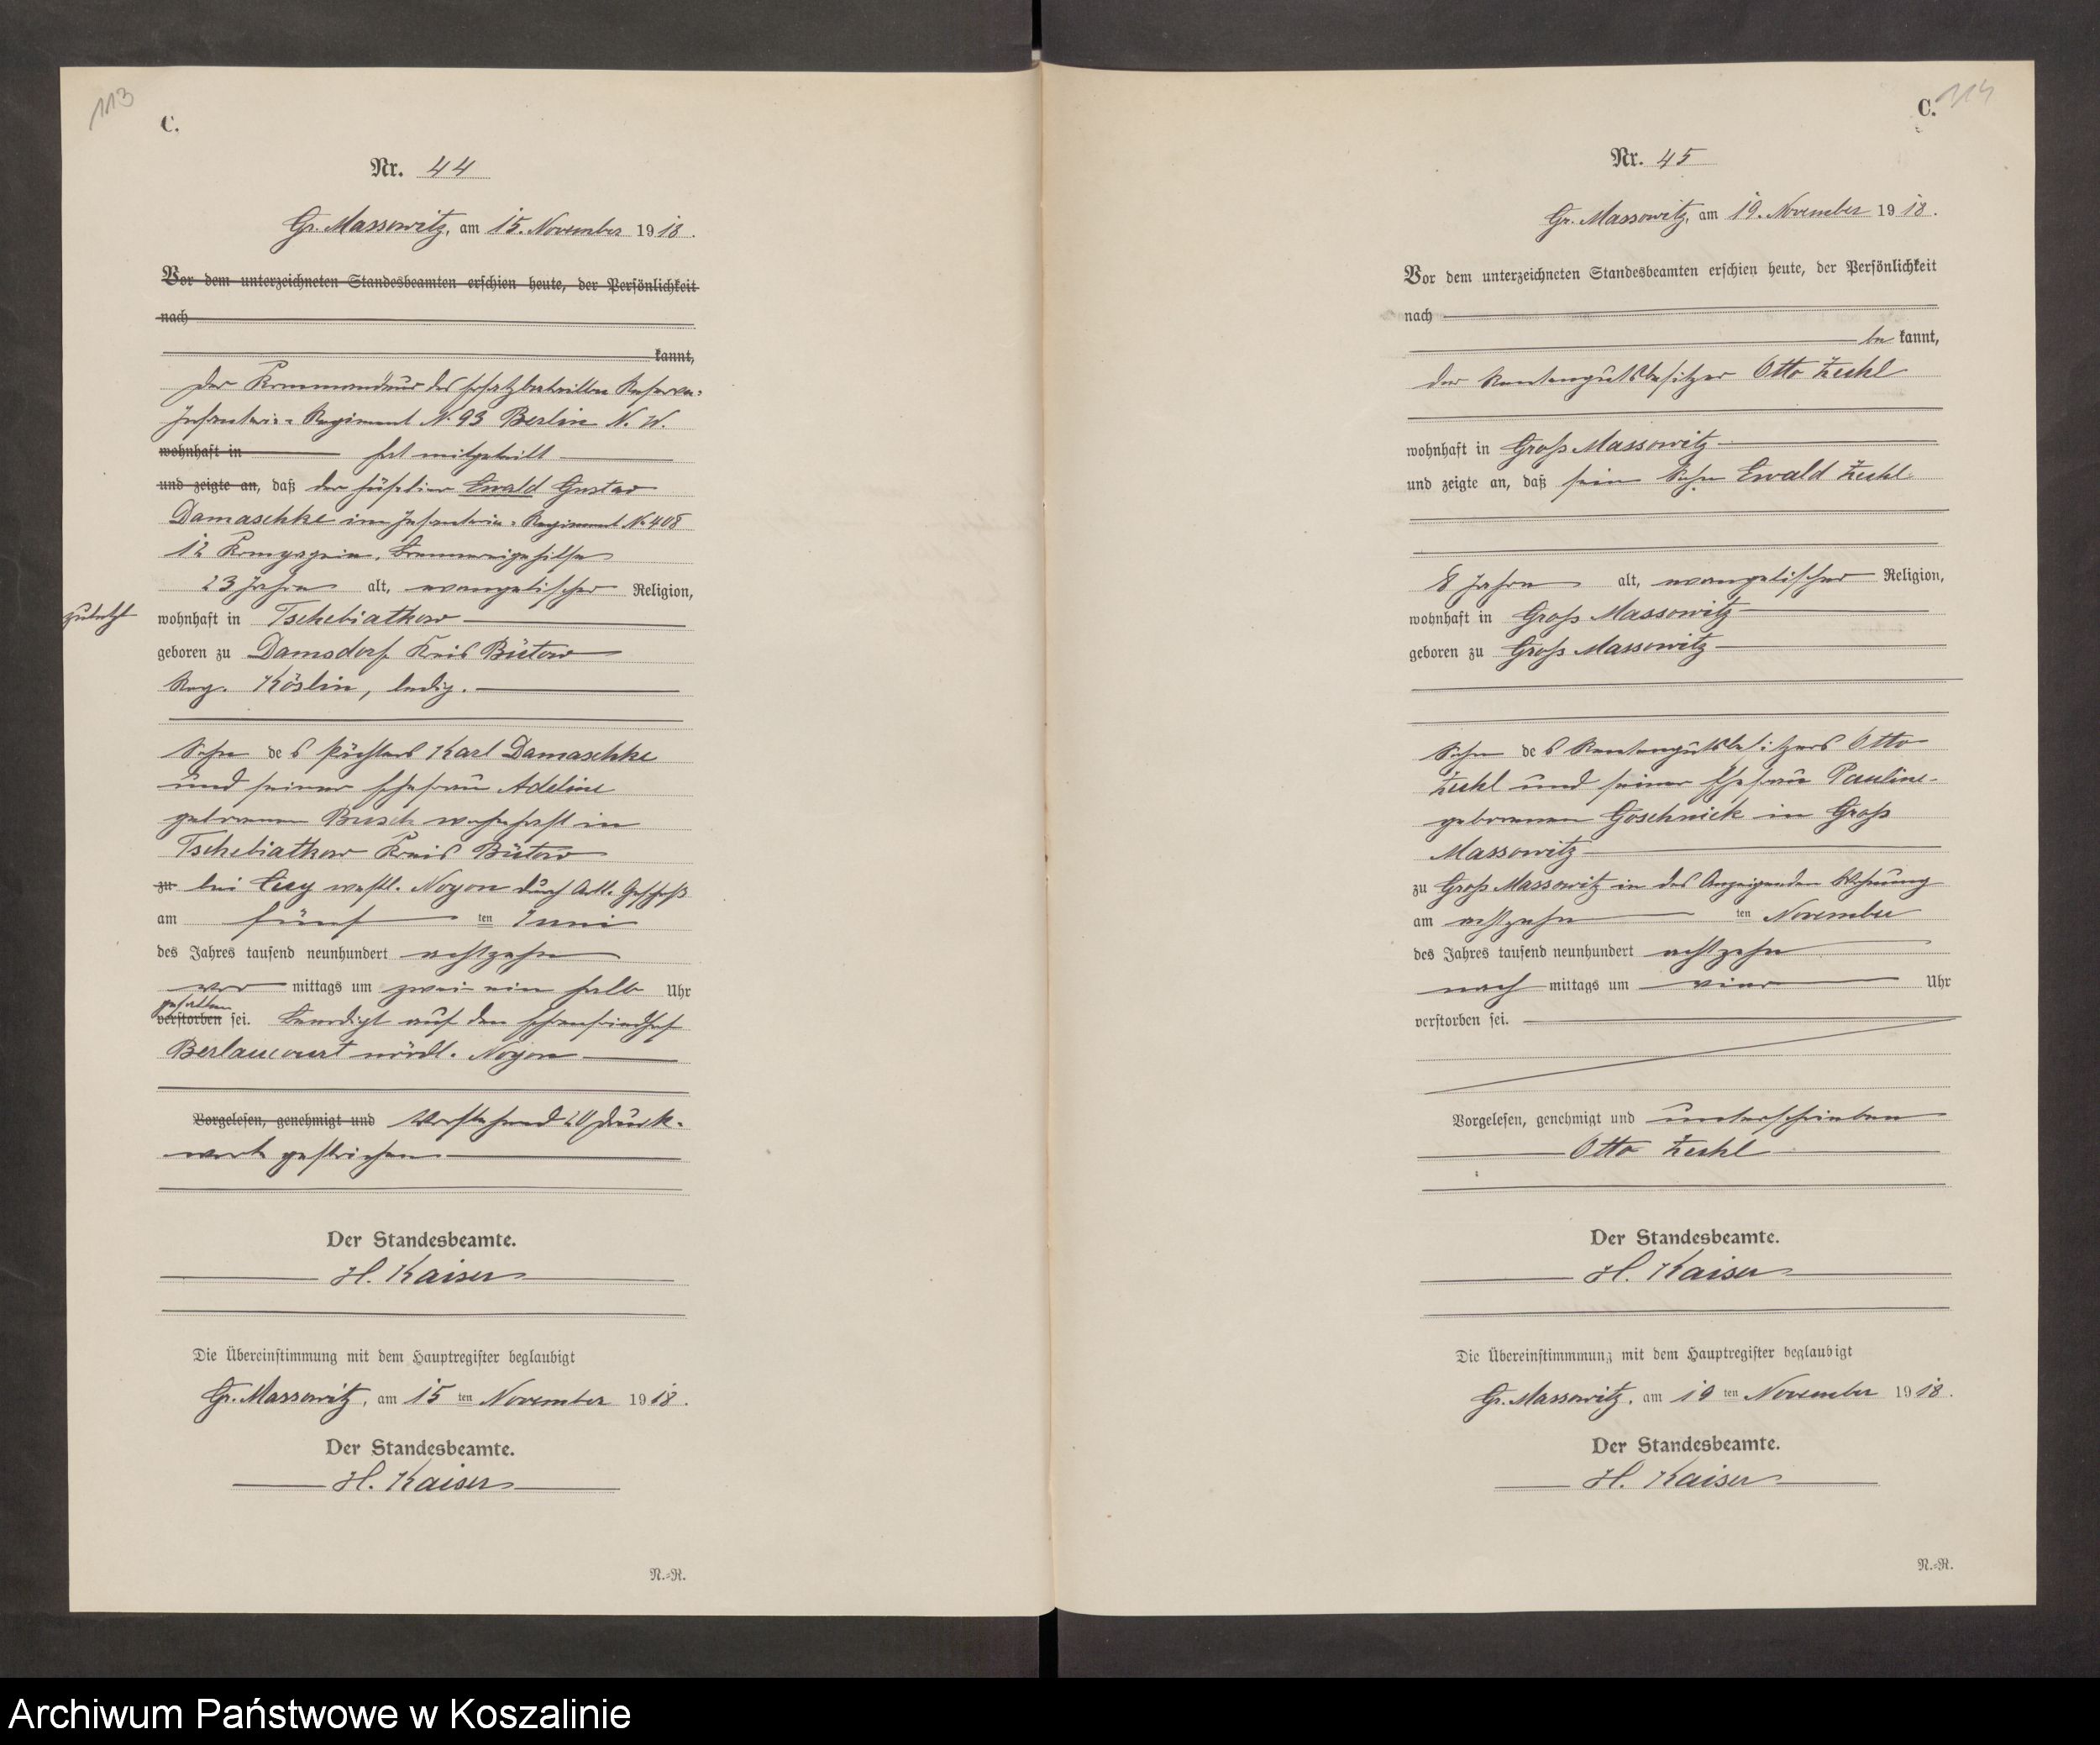 113
C.
Nr. 44
Gr. Massowitz, am 15. November 1918.
Vor dem unterzeichneten Standesbeamten erschien heute, der Persönlichkeit
nach
kannt,
Der Kommandeur des Ersatzbataillon Reserve-
Infanterie-Regiment N. 93 Berlin N. W.
wohnhaft in hat mitgeteilt
und zeigte an, daß der Füsilier Ewald Gustav
Damaschke im Infanterie-Regiment No 408
12 Kompagnie, Brennereigehilfe
23 Jahre alt, evangelischer Religion,
zuletzt wohnhaft in Tschebiatkow
geboren zu Damsdorf Kreis Bütow
Reg. Köslin, ledig.
Sohn des Pächters Karl Damaschke
und seiner Ehefrau Adeline
geborenen Busch wohnhaft in
Tschebiatkow Kreis Bütow
zu bei Cuy westl. Noyon durch Artl. Geschoß
am fünf ten Juni
des Jahres tausend neunhundert achtzehn
vor mittags um zwei ein halb Uhr
gefallen
verstorben sei. Beerdigt auf den Ehrenfriedhof
Berlancourt nördl. Noyon
Vorgelesen, genehmigt und Vorstehend 20 Druck-
worte gestrichen
Der Standesbeamte.
H. Kaiser
Die Übereinstimmung mit dem Hauptregister beglaubigt
Gr. Massowitz, am 15 ten November 1918.
Der Standesbeamte.
H. Kaiser
N.=R.
C. 114
Nr. 45
Gr. Massowitz, am 19. November 1918.
Vor dem unterzeichneten Standesbeamten erschien heute, der Persönlichkeit
nach
be kannt,
der Rentengutsbesitzer Otto Zechl
wohnhaft in Groß Massowitz
und zeigte an, daß sein Sohn Ewald Zechl
8 Jahre alt, evangelischer Religion,
wohnhaft in Groß Massowitz
geboren zu Groß Massowitz
Sohn des Rentengutsbesitzers Otto
Zechl und seiner Ehefrau Pauline
geborenen Goschnick in Groß
Massowitz
zu Groß Massowitz in des Anzeigenden Wohnung
am achtzehn ten November
des Jahres tausend neunhundert achtzehn
nach mittags um vier Uhr
verstorben sei.
Vorgelesen, genehmigt und unterschrieben
Otto Zechl
Der Standesbeamte.
H. Kaiser
Die Übereinstimmung mit dem Hauptregister beglaubigt
Gr. Massowitz, am 19 ten November 1918.
Der Standesbeamte.
H. Kaiser
N.=R.
Archiwum Państwowe w Koszalinie